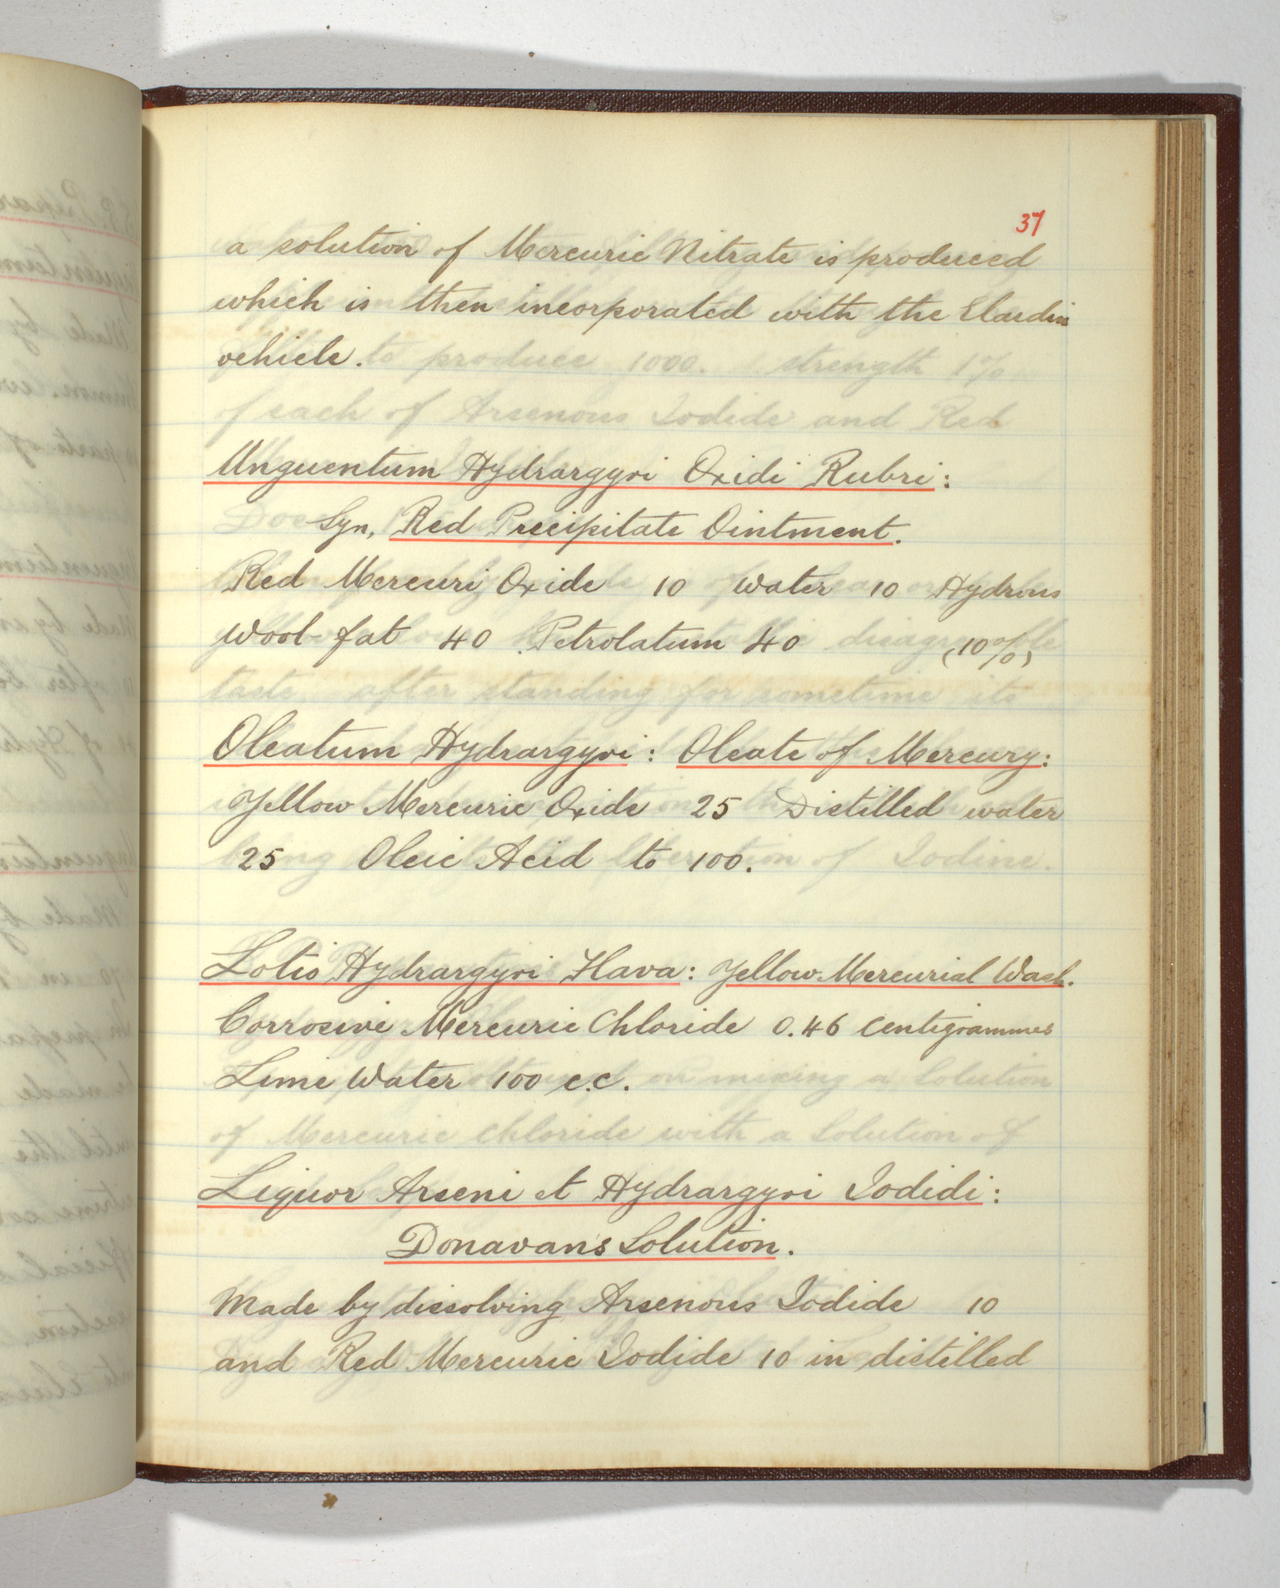 37
a solution of Mercuric Nitrate is produced
which is then incorporated with the Elaidin
vehicle.
Unguentum Hydrargyri Oxidi Rubri:
Syn, Red Precipitate Ointment.
Red Mercuri Oxide 10 Water 10 Hydrous
Wool fat 40 Petrolatum 40 (10%)
Oleatum Hydrargyri: Oleate of Mercury:
Yellow Mercuric Oxide 25 Distilled water
25 Oleic Acid to 100.
Lotio Hydrargyri Flava: Yellow Mercurial Wash.
Corrosive Mercuric Chloride 0.46 Centigrammes
Lime Water 100 c.c.
Liquor Arseni et Hydrargyri Iodidi:
Donavans Solution.
Made by dissolving Arsenous Iodide 10
and Red Mercuric Iodide 10 in distilled